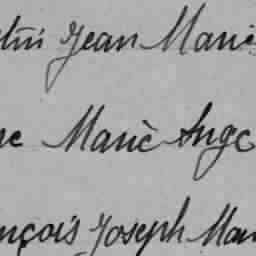 Jean Marie
Marie Ange
nçois Joseph Mar